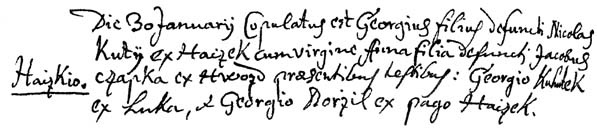 Die 30 Januarij Copulatus est Georgius filius defuncti Nicolai
Kutij ex Haizek cum virgine Anna filia defuncti Jacobus
Haizkio. czapka ex Hwozd præsentibus testibus: Georgio Kubitek
ex Luka, & Georgio Borzil ex pago Haizek.